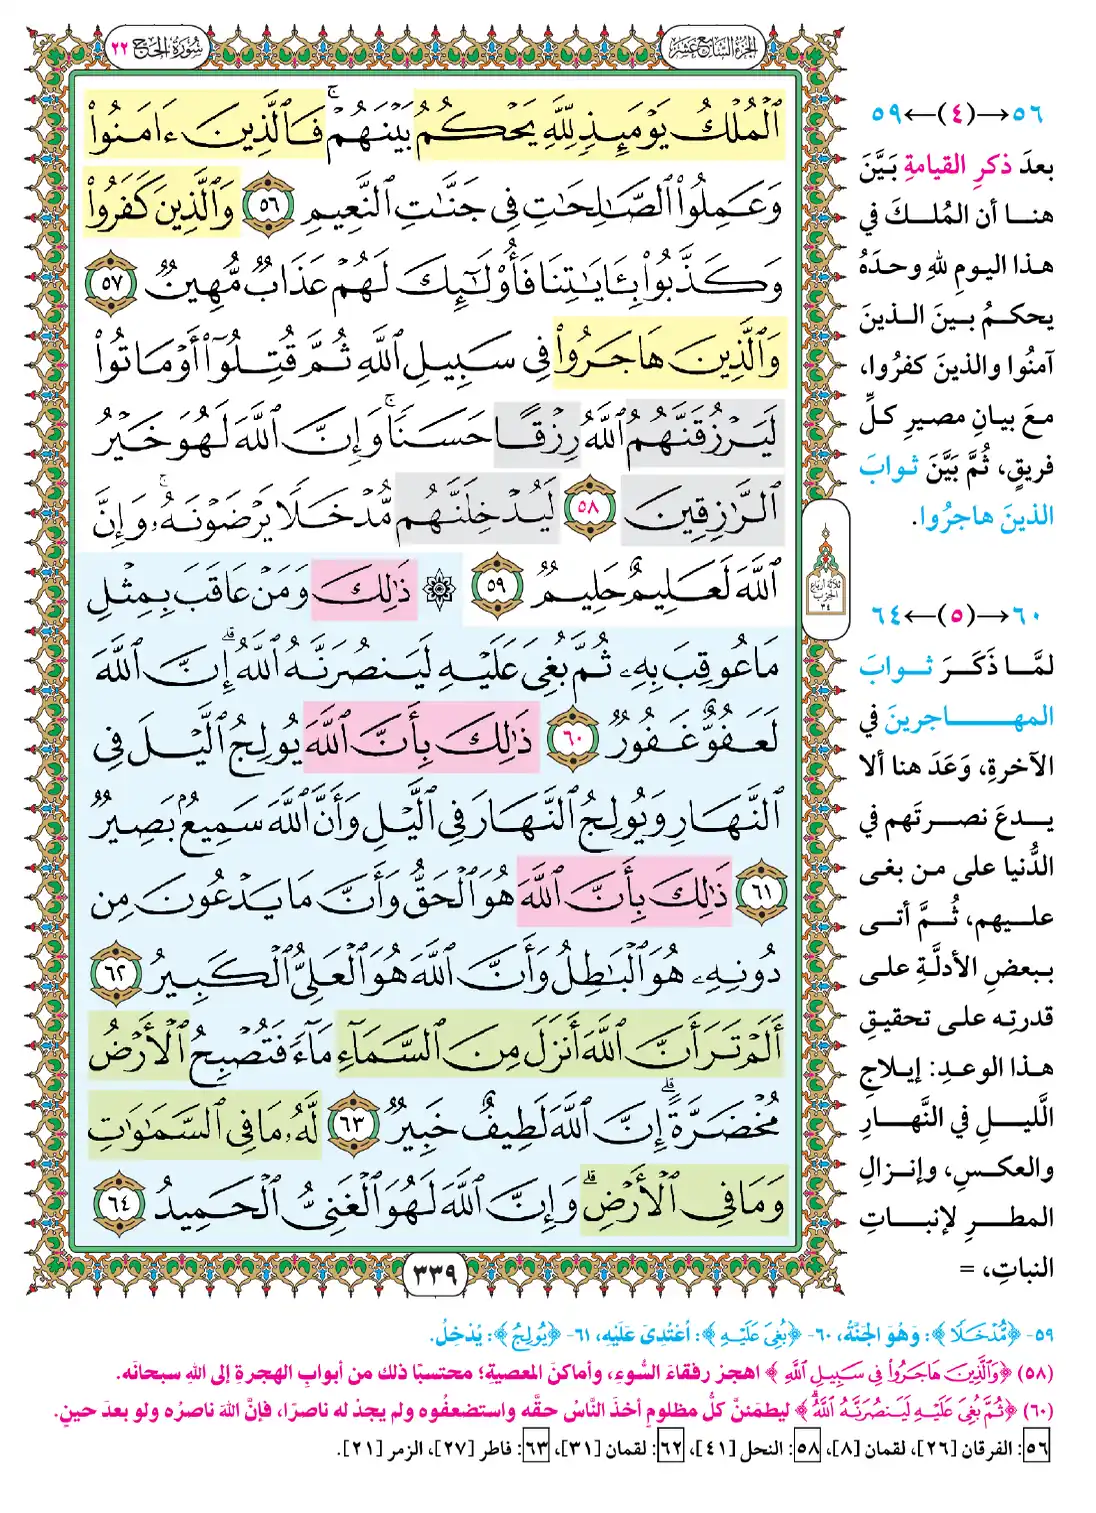 الجزء السابع عشر
سورة الحج ٢٢
ٱلْمُلْكُ يَوْمَئِذٍ لِّلَّهِ يَحْكُمُ بَيْنَهُمْ ۚ فَٱلَّذِينَ ءَامَنُوا۟
وَعَمِلُوا۟ ٱلصَّـٰلِحَـٰتِ فِى جَنَّـٰتِ ٱلنَّعِيمِ ٥٦ وَٱلَّذِينَ كَفَرُوا۟
وَكَذَّبُوا۟ بِـَٔايَـٰتِنَا فَأُو۟لَـٰٓئِكَ لَهُمْ عَذَابٌ مُّهِينٌ ٥٧
وَٱلَّذِينَ هَاجَرُوا۟ فِى سَبِيلِ ٱللَّهِ ثُمَّ قُتِلُوٓا۟ أَوْ مَاتُوا۟
لَيَرْزُقَنَّهُمُ ٱللَّهُ رِزْقًا حَسَنًا ۚ وَإِنَّ ٱللَّهَ لَهُوَ خَيْرُ
ٱلرَّٰزِقِينَ ٥٨ لَيُدْخِلَنَّهُم مُّدْخَلًا يَرْضَوْنَهُۥ ۚ وَإِنَّ
ٱللَّهَ لَعَلِيمٌ حَلِيمٌ ٥٩ ۞ ذَٰلِكَ وَمَنْ عَاقَبَ بِمِثْلِ
مَا عُوقِبَ بِهِۦ ثُمَّ بُغِىَ عَلَيْهِ لَيَنصُرَنَّهُ ٱللَّهُ ۗ إِنَّ ٱللَّهَ
لَعَفُوٌّ غَفُورٌ ٦٠ ذَٰلِكَ بِأَنَّ ٱللَّهَ يُولِجُ ٱلَّيْلَ فِى
ٱلنَّهَارِ وَيُولِجُ ٱلنَّهَارَ فِى ٱلَّيْلِ وَأَنَّ ٱللَّهَ سَمِيعٌۢ بَصِيرٌ
٦١ ذَٰلِكَ بِأَنَّ ٱللَّهَ هُوَ ٱلْحَقُّ وَأَنَّ مَا يَدْعُونَ مِن
دُونِهِۦ هُوَ ٱلْبَـٰطِلُ وَأَنَّ ٱللَّهَ هُوَ ٱلْعَلِىُّ ٱلْكَبِيرُ ٦٢
أَلَمْ تَرَ أَنَّ ٱللَّهَ أَنزَلَ مِنَ ٱلسَّمَآءِ مَآءً فَتُصْبِحُ ٱلْأَرْضُ
مُخْضَرَّةً ۗ إِنَّ ٱللَّهَ لَطِيفٌ خَبِيرٌ ٦٣ لَّهُۥ مَا فِى ٱلسَّمَـٰوَٰتِ
وَمَا فِى ٱلْأَرْضِ ۗ وَإِنَّ ٱللَّهَ لَهُوَ ٱلْغَنِىُّ ٱلْحَمِيدُ ٦٤
ثلاثة أرباع
الحزب
٣٤
٣٣٩
٥٦→(٤)←٥٩
بعدَ ذكرِ القيامةِ بَيَّنَ
هنا أن المُلكَ في
هذا اليومِ للهِ وحدَهُ
يحكمُ بينَ الذينَ
آمنُوا والذينَ كفرُوا،
معَ بيانِ مصيرِ كلِّ
فريقٍ، ثُمَّ بَيَّنَ ثوابَ
الذينَ هاجرُوا.
٦٠→(٥)←٦٤
لمَّا ذَكَرَ ثوابَ
المهاجرينَ في
الآخرةِ، وَعَدَ هنا ألا
يدعَ نصرتَهم في
الدُّنيا على من بغى
عليهم، ثُمَّ أتى
ببعضِ الأدلَّةِ على
قدرتِه على تحقيقِ
هذا الوعدِ: إيلاجِ
الَّليلِ في النَّهارِ
والعكسِ، وإنزالِ
المطرِ لإنباتِ
النباتِ، =
٥٩- ﴿مُّدْخَلًا﴾: وَهُوَ الجَنَّةُ، ٦٠- ﴿بُغِيَ عَلَيْهِ﴾: اعْتُدِيَ عَلَيْهِ، ٦١- ﴿يُولِجُ﴾: يُدْخِلُ.
(٥٨) ﴿وَٱلَّذِينَ هَاجَرُوا۟ فِى سَبِيلِ ٱللَّهِ﴾ اهجر رفقاءَ السُّوءِ، وأماكنَ المعصيةِ؛ محتسبًا ذلك من أبوابِ الهجرةِ إلى اللهِ سبحانَه.
(٦٠) ﴿ثُمَّ بُغِىَ عَلَيْهِ لَيَنصُرَنَّهُ ٱللَّهُ ۗ﴾ ليطمَئنَّ كلُّ مظلومٍ أخذَ النَّاسُ حقَّه واستضعفُوه ولم يجدْ له ناصرًا، فإنَّ اللهَ ناصرُه ولو بعدَ حينٍ.
٥٦: الفرقان [٢٦]، لقمان [٨]، ٥٨: النحل [٤١]، ٦٢: لقمان [٣١]، ٦٣: فاطر [٢٧]، الزمر [٢١].